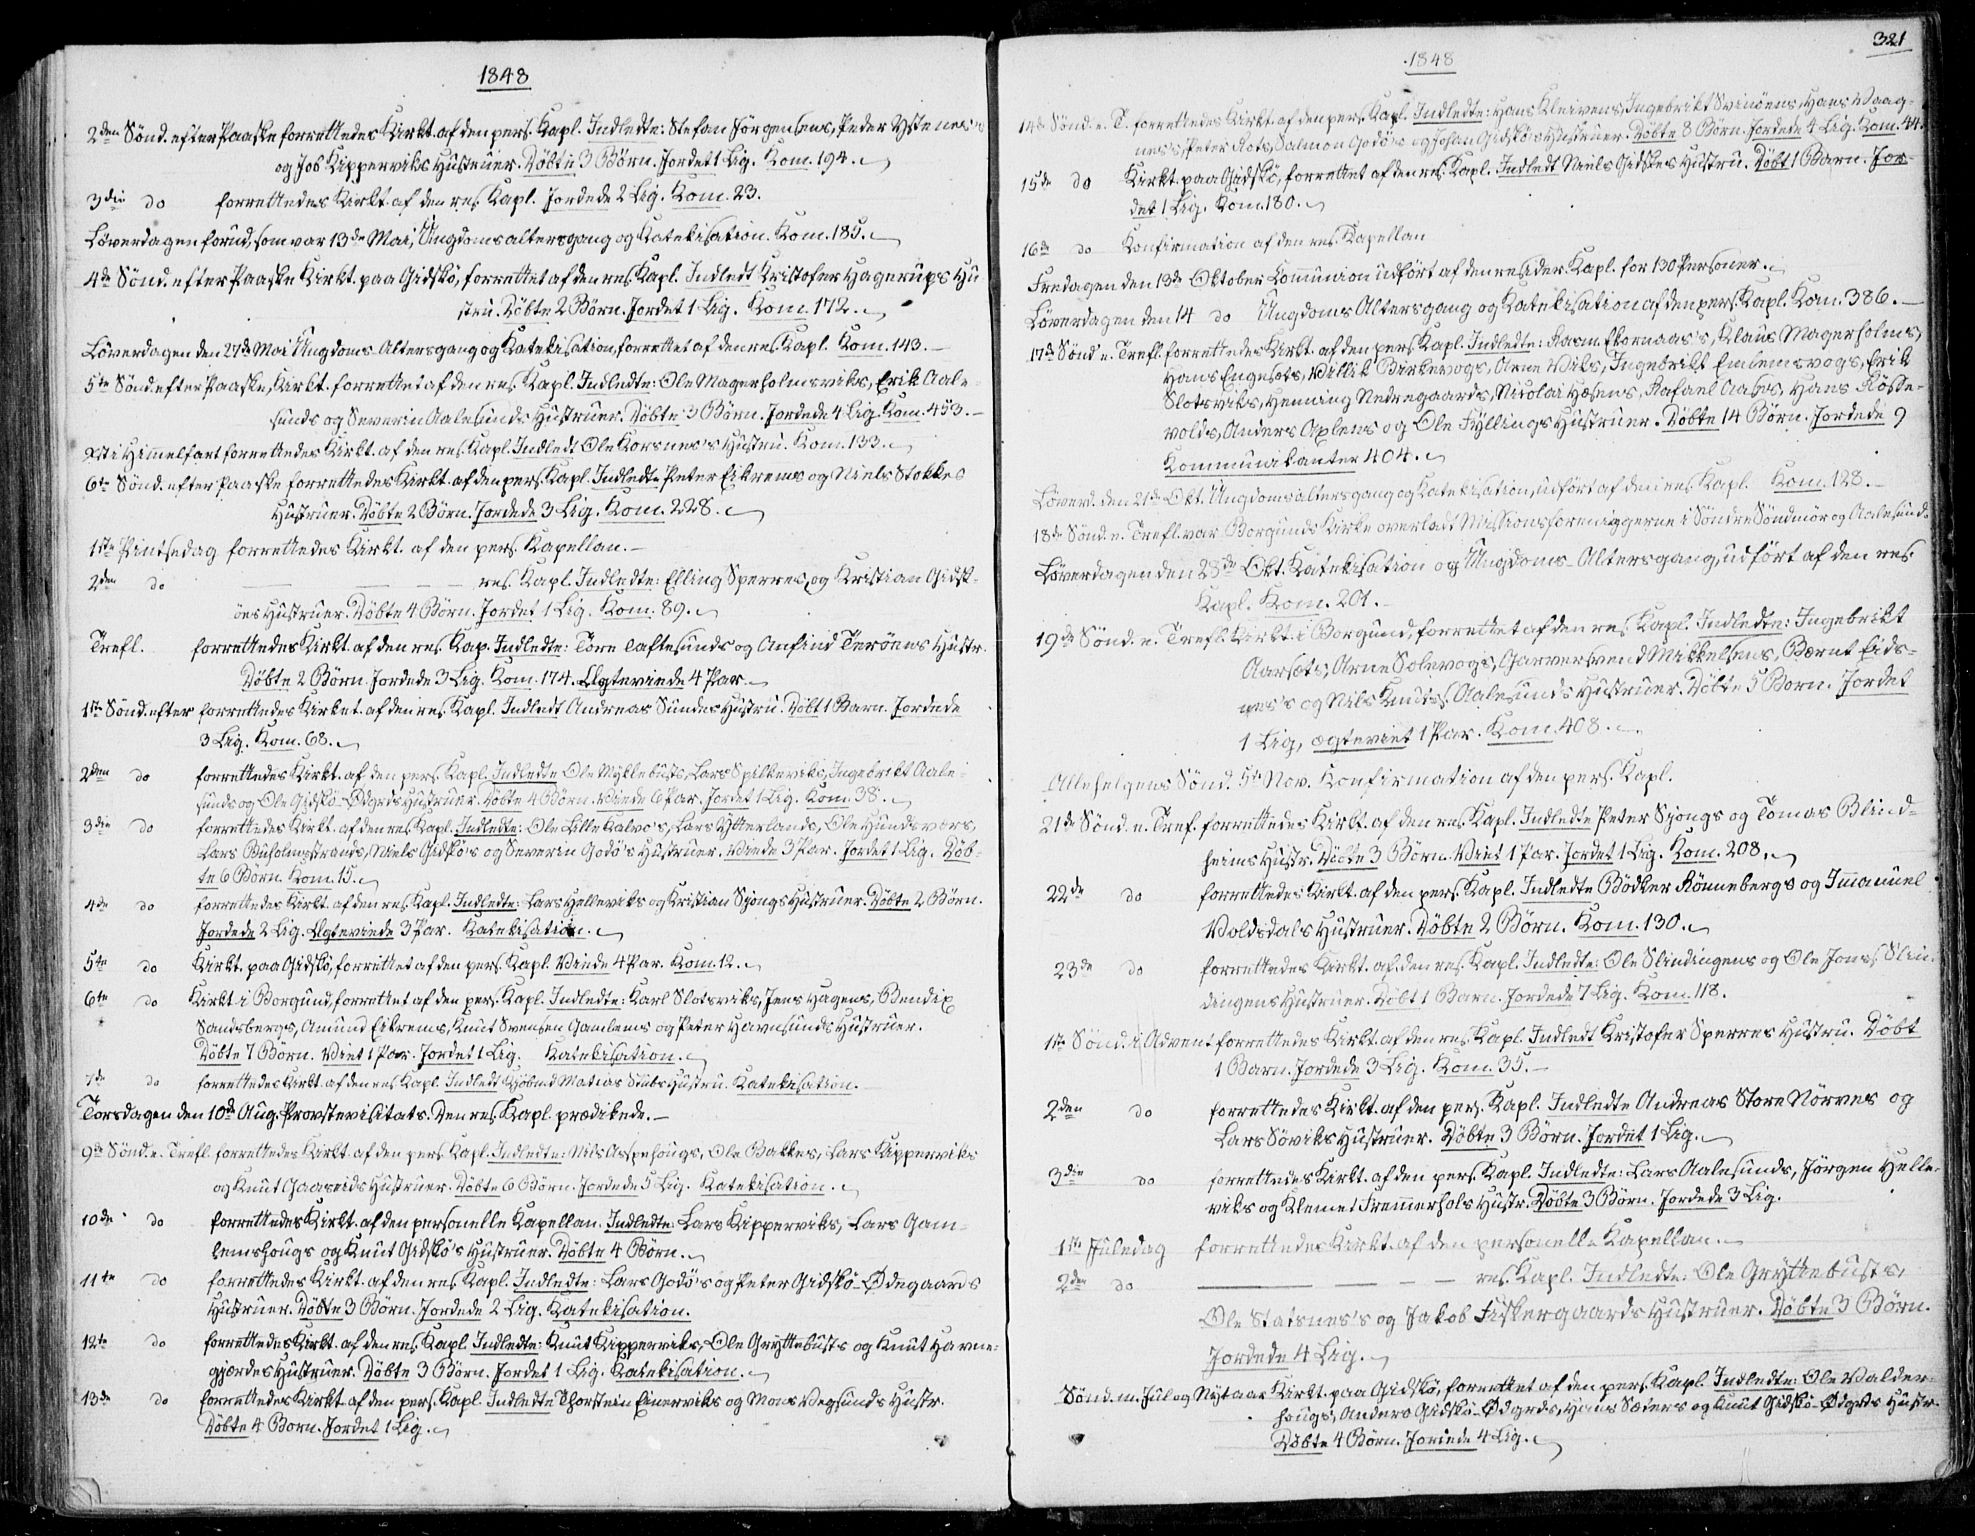 1848
2den Sönd. efter Paaske forrettedes Kirkt. af den pers. Kapl. Indledte: Stefan Jörgensens, Peder Ystenes's
og Job Kipperviks Hustruer. Døbte 3 Börn. Jordet 1 Lig. Kom. 194.
3die do forrettedes Kirkt. af den res. Kapl. Jordede 2 Lig. Kom. 23.
Löverdagen forud, som var 13de Mai, Ungdomsaltergang og Katekisation. Kom. 185.
4de Sönd. efter Paaske Kirkt. paa Gidskö, forrettet af den res. Kapl. Indledt Kristofer Hagerups Hu
stru. Döbte 2 Börn. Jordet 1 Lig. Kom. 172.
Löverdagen den 27de Mai Ungdoms-Altersgang og Katekisation forrettet af den res. Kapl. Kom. 143.
5te Sönd. efter Paaske, Kirkt. forrettet af den res. Kapl. Indledte: Ole Magerholmsviks, Erik Aale-
sunds og Severin Aalesunds Hustruer. Döbte 3 Börn. Jordede 4 Lig. Kom. 453.
Xsti Himmelfart forrettedes Kirkt. af den res. Kapl. Indledt Ole Korsnes's Hustru. Kom. 133.
6te Sönd. efter Paaske forrettedes Kirkt. af den pers. Kapl. Indledte Peter Eikrems og Niels Stokkes
Hustruer. Döbte 2 Börn. Jordede 3 Lig. Kom. 228.
1ste Pintsedag forrettedes Kirkt. af den pers. Kapellan.
2den do — — — — res. Kapl. Indledte: Elling Sperres, og Kristian Gidsk-
öes Hustruer. Döbte 4 Börn. Jordet 1 Lig. Kom. 89.
Trefl. forrettedes Kirkt. af den res. Kap. Indledte: Tore Taftesunds og Anfind Teröens Hustr.
Döbte 2 Börn. Jordede 3 Lig. Kom. 174. Ægteviede 4 Par.
1ste Sönd. efter forrettedes Kirket. af den res. Kapl. Indledt Andreas Sundes Hustru. Döbt 1 Barn. Jordede
3 Lig. Kom. 68.
2den do forrettedes Kirkt. af den pers. Kapl. Indledte Ole Myklebusts, Lars Spilkeviks, Ingebrikt Aale-
sunds og Ole Gidskö-Ödgrds Hustruer. Döbte 4 Börn. Viede 6 Par. Jordet 1 Lig. Kom. 38.
3die do forrettedes Kirkt. af den res. Kapl. Indledte: Ole Lille Kalvö's, Lars Ytterlands, Ole Hundsværs,
Lars Buholmstrands, Niels Gidskö's og Severin Godö's Hustruer. Viede 3 Par. Jordet 1 Lig. Döb-
te 6 Börn. Kom. 15.
4de do forrettedes Kirkt. af den res. Kapl. Indledte: Lars Helleviks og Kristian Sjongs Hustruer. Döbte 2 Börn.
Jordede 2 Lig. Ægteviede 3 Par. Katekisation.
5te do Kirkt. paa Gidskö, forrettet af den pers. Kapl. Viede 4 Par. Kom. 12.
6te do Kirkt. i Borgund, forrettet af den pers. Kapl. Indledte: Karl Slotsviks, Jens Hagens, Bendix
Sandsbergs, Amund Eikrems, Knut Svensen Gamlems og Peter Havnsunds Hustruer.
Döbte 7 Börn. Viet 1 Par. Jordet 1 Lig. Katekisation.
7de do forrettedes Kirkt. af den res. Kapl. Indledt Kjöbmd Matias Stubs Hustru. Katekisation.
Torsdagen den 10de Aug. Provstevisitats. Den res. Kapl. prædikede.
9de Sönd. e. Trefl. forrettedes Kirkt. af den pers. Kapl. Indledte: Nils Aspehougs, Ole Bakkes, Lars Kipperviks
og Knut Gaaseids Hustruer. Döbte 6 Börn. Jordede 5 Lig. Katekisation.
10de do forrettedes Kirkt. af den personelle Kapellan. Indledte: Lars Kipperviks, Lars Gam-
lemshougs og Knut Gidskö's Hustruer. Döbte 4 Börn.
11te do forrettedes Kirkt. af den res. Kapl. Indledte: Lars Godö's og Peter Gidskö-Ödegaards
Hustruer. Döbte 3 Börn. Jordede 2 Lig. Katekisation.
12te do forrettedes Kirkt. af den res. Kapl. Indledte: Knut Kipperviks, Ole Gryttebusts og Knut Havne-
gjærdes Hustruer. Döbte 3 Börn. Jordet 1 Lig. Katekisation.
13de do forrettedes Kirkt. af den pers. Kapl. Indledte Thorstein Einerviks og Mons Vegsunds Hustr.
Döbte 4 Born. Jordet 1 Lig.
321
1848
14de Sönd. e. T. forrettedes Kirkt. af den pers. Kapl. Indledte: Hans Kleivens, Ingebrikt Svinöens, Hans Vaag-
nes's, Peter Rots, Salmon Godö's og Johan Gidskö's Hustruer. Döbte 8 Börn. Jordede 4 Lig. Kom. 44.
15de do Kirkt. paa Gidskö, forrettet af den res. Kapl. Indledt Niels Gidskes Hustru. Döbt 1 Barn. Jor-
det 1 Lig. Kom. 180.
16de do Konfirmation af den res. Kapellan
Fredagen den 13de Oktober Communion udfört af den resider. Kapl. for 130 Personer.
Löverdagen den 14 do Ungdoms Altersgang og Katekisation af den pers. Kapl. Kom. 386.
17de Sönd e. Trefl. forrettedes Kirkt. af den pers Kapl. Indledte: Rasm. Ekornaas's, Klaus Magerholms,
Hans Engesets, Villik Birkevogs, Arne Viks, Ingebrikt Emblemsvogs, Erik
Slotsviks, Henning Nedregaards, Nikolai Hæsens, Rafael Aases, Hans Röste-
volds, Anders Axlens og Ole Fyllings Hustruer. Döbte 14 Börn. Jordede 9
Kommunikanter 404.
Löverd. den 21de Okt. Ungdomsaltersgang og Katekisation, udfört af den res. Kapl. Kom. 128.
18de Sönd. e. Trefl. var Borgunds Kirke overladt Missionsforeniggerne i Söndre Söndmör og Aalesund.
Löverdagen den 28de Okt. Katekisation og Ungdoms-Altersgang, udfört af den res.
Kapl. Kom. 201.
19de Sönd. e. Trefl. Kirkt. i Borgund, forrettet af den res. Kapl. Indledte: Ingebrikt
Aarsets, Arne Solevogs, Garversvend Mikkelsens, Bærnt Eids-
nes's og Nils Knuts. Aalesunds Hustruer. Döbte 5 Born. Jordet
1 Lig, ægteviet 1 Par. Kom. 408.
Allehelgens Sönd. 5te Nov. Konfirmation af den pers. Kapl.
21de Sönd. e. Tref. forrettedes Kirkt. af den res. Kapl. Indledte Peter Sjongs og Tomas Blind-
heims Hustr. Döbte 3 Börn. Viet 1 Par. Jordet 1 Lig. Kom. 208.
22de do forrettedes Kirkt. af den pers. Kapl. Indledte Bödker Rönnebergs og Immanuel
Voldsdals Hustruer. Döbte 2 Börn. Kom. 130.
23de do forrettedes Kirkt. af den res. Kapl. Indledte: Ole Slindingens og Ole Jons. Slin-
dingens Hustruer. Döbt 1 Barn. Jordede 7 Lig. Kom. 118.
1ste Sönd. i Advent forrettedes Kirkt. af den res. Kapl. Indledt Kristofer Sperres Hustru. Döbt
1 Barn. Jordede 3 Lig. Kom. 35.
2den do forrettedes Kirkt. af den pers. Kapl. Indledte Andreas Store Nörves og
Lars Söviks Hustruer. Döbte 3 Börn. Jordet 1 Lig.
3die do forrettedes Kirkt. af den pers. Kapl. Indledte: Lars Aalesunds, Jörgen Helle-
viks og Klemet Fremmerhols Hustr. Döbte 3 Börn. Jordede 3 Lig.
1ste Juledag forrettedes Kirkt. af den personelle Kapellan.
2den do — — — — res. Kapl. Indledte: Ole Gryttebusts,
Ole Statsnes's og Jakob Fiskergaards Hustruer. Döbte 3 Börn.
Jordede 4 Lig.
Sönd. m. Jul og Nytaar Kirkt. paa Gidskö, forrettet af den pers. Kapl. Indledte: Ole Valder-
hougs, Anders Gidskö-Ödgrds, Hans Sæters og Knut Gidskö-Ödgrds Hustr.
Döbte 4 Börn. Jordede 4 Lig.